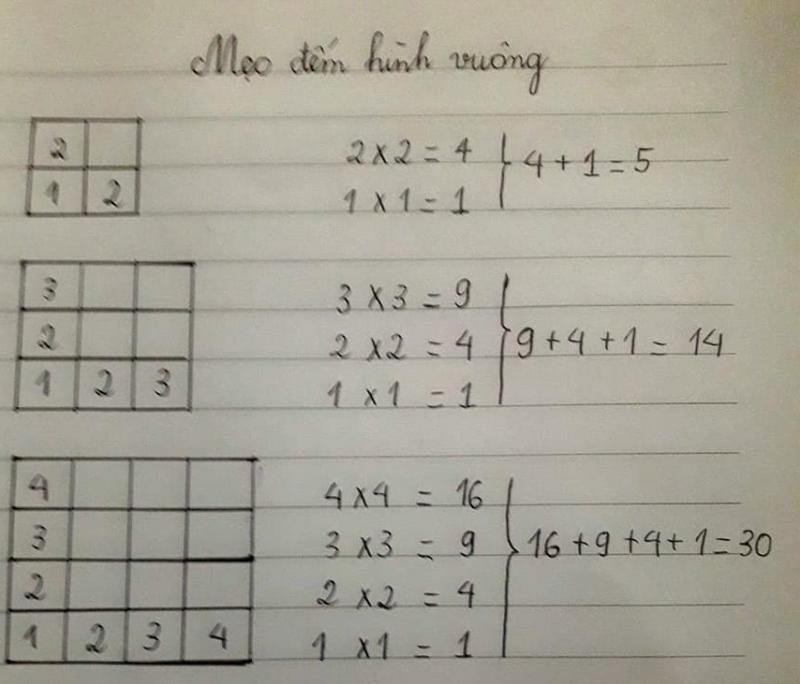 Mẹo đếm hình vuông
2
1 2
2 x 2 = 4
1 x 1 = 1
4 + 1 = 5
3
2
1 2 3
3 x 3 = 9
2 x 2 = 4
1 x 1 = 1
9 + 4 + 1 = 14
4
3
2
1 2 3 4
4 x 4 = 16
3 x 3 = 9
2 x 2 = 4
1 x 1 = 1
16 + 9 + 4 + 1 = 30